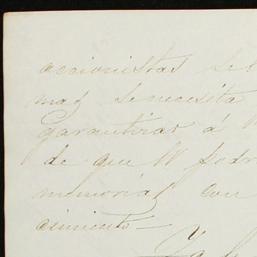 accionistas se
mas se necesita
garantizar á
de que V. podr
memorial con
asimiento—
Ya